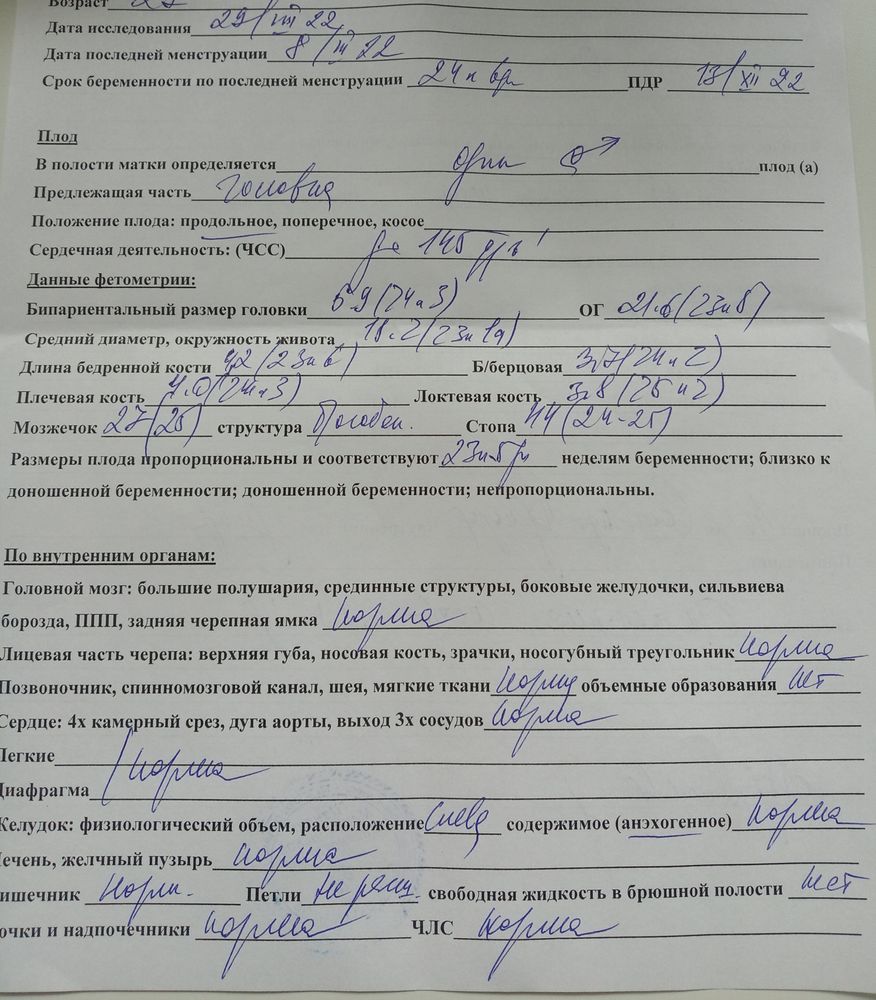 Возраст 27
Дата исследования 29/VIII 22
Дата последней менструации 8/III 22
Срок беременности по последней менструации 24н 6дн ПДР 13/XII 22
Плод
В полости матки определяется один плод (а)
Предлежащая часть головка
Положение плода: продольное, поперечное, косое
Сердечная деятельность: (ЧСС) да 145 уд '
Данные фетометрии:
Бипариентальный размер головки 5.9 (24н3) ОГ 21.6 (23н6)
Средний диаметр, окружность живота 18.2 (23н1д)
Длина бедренной кости 4,2 (23н6) Б/берцовая 3,7 (24н2)
Плечевая кость 4.0 (24н3) Локтевая кость 3,8 (25н2)
Мозжечок 27 (25) структура Стопа 44 (24-25)
Размеры плода пропорциональны и соответствуют 23н-5дн неделям беременности; близко к
доношенной беременности; доношенной беременности; непропорциональны.
По внутренним органам:
Головной мозг: большие полушария, срединные структуры, боковые желудочки, сильвиева
борозда, ППП, задняя черепная ямка норма
Лицевая часть черепа: верхняя губа, носовая кость, зрачки, носогубный треугольник норма
Позвоночник, спинномозговой канал, шея, мягкие ткани норма объемные образования нет
Сердце: 4х камерный срез, дуга аорты, выход 3х сосудов норма
Легкие
Диафрагма норма
Желудок: физиологический объем, расположение слева содержимое (анэхогенное) норма
Печень, желчный пузырь норма
ишечник норм. Петли не расш. свободная жидкость в брюшной полости нет
очки и надпочечники норма ЧЛС норма